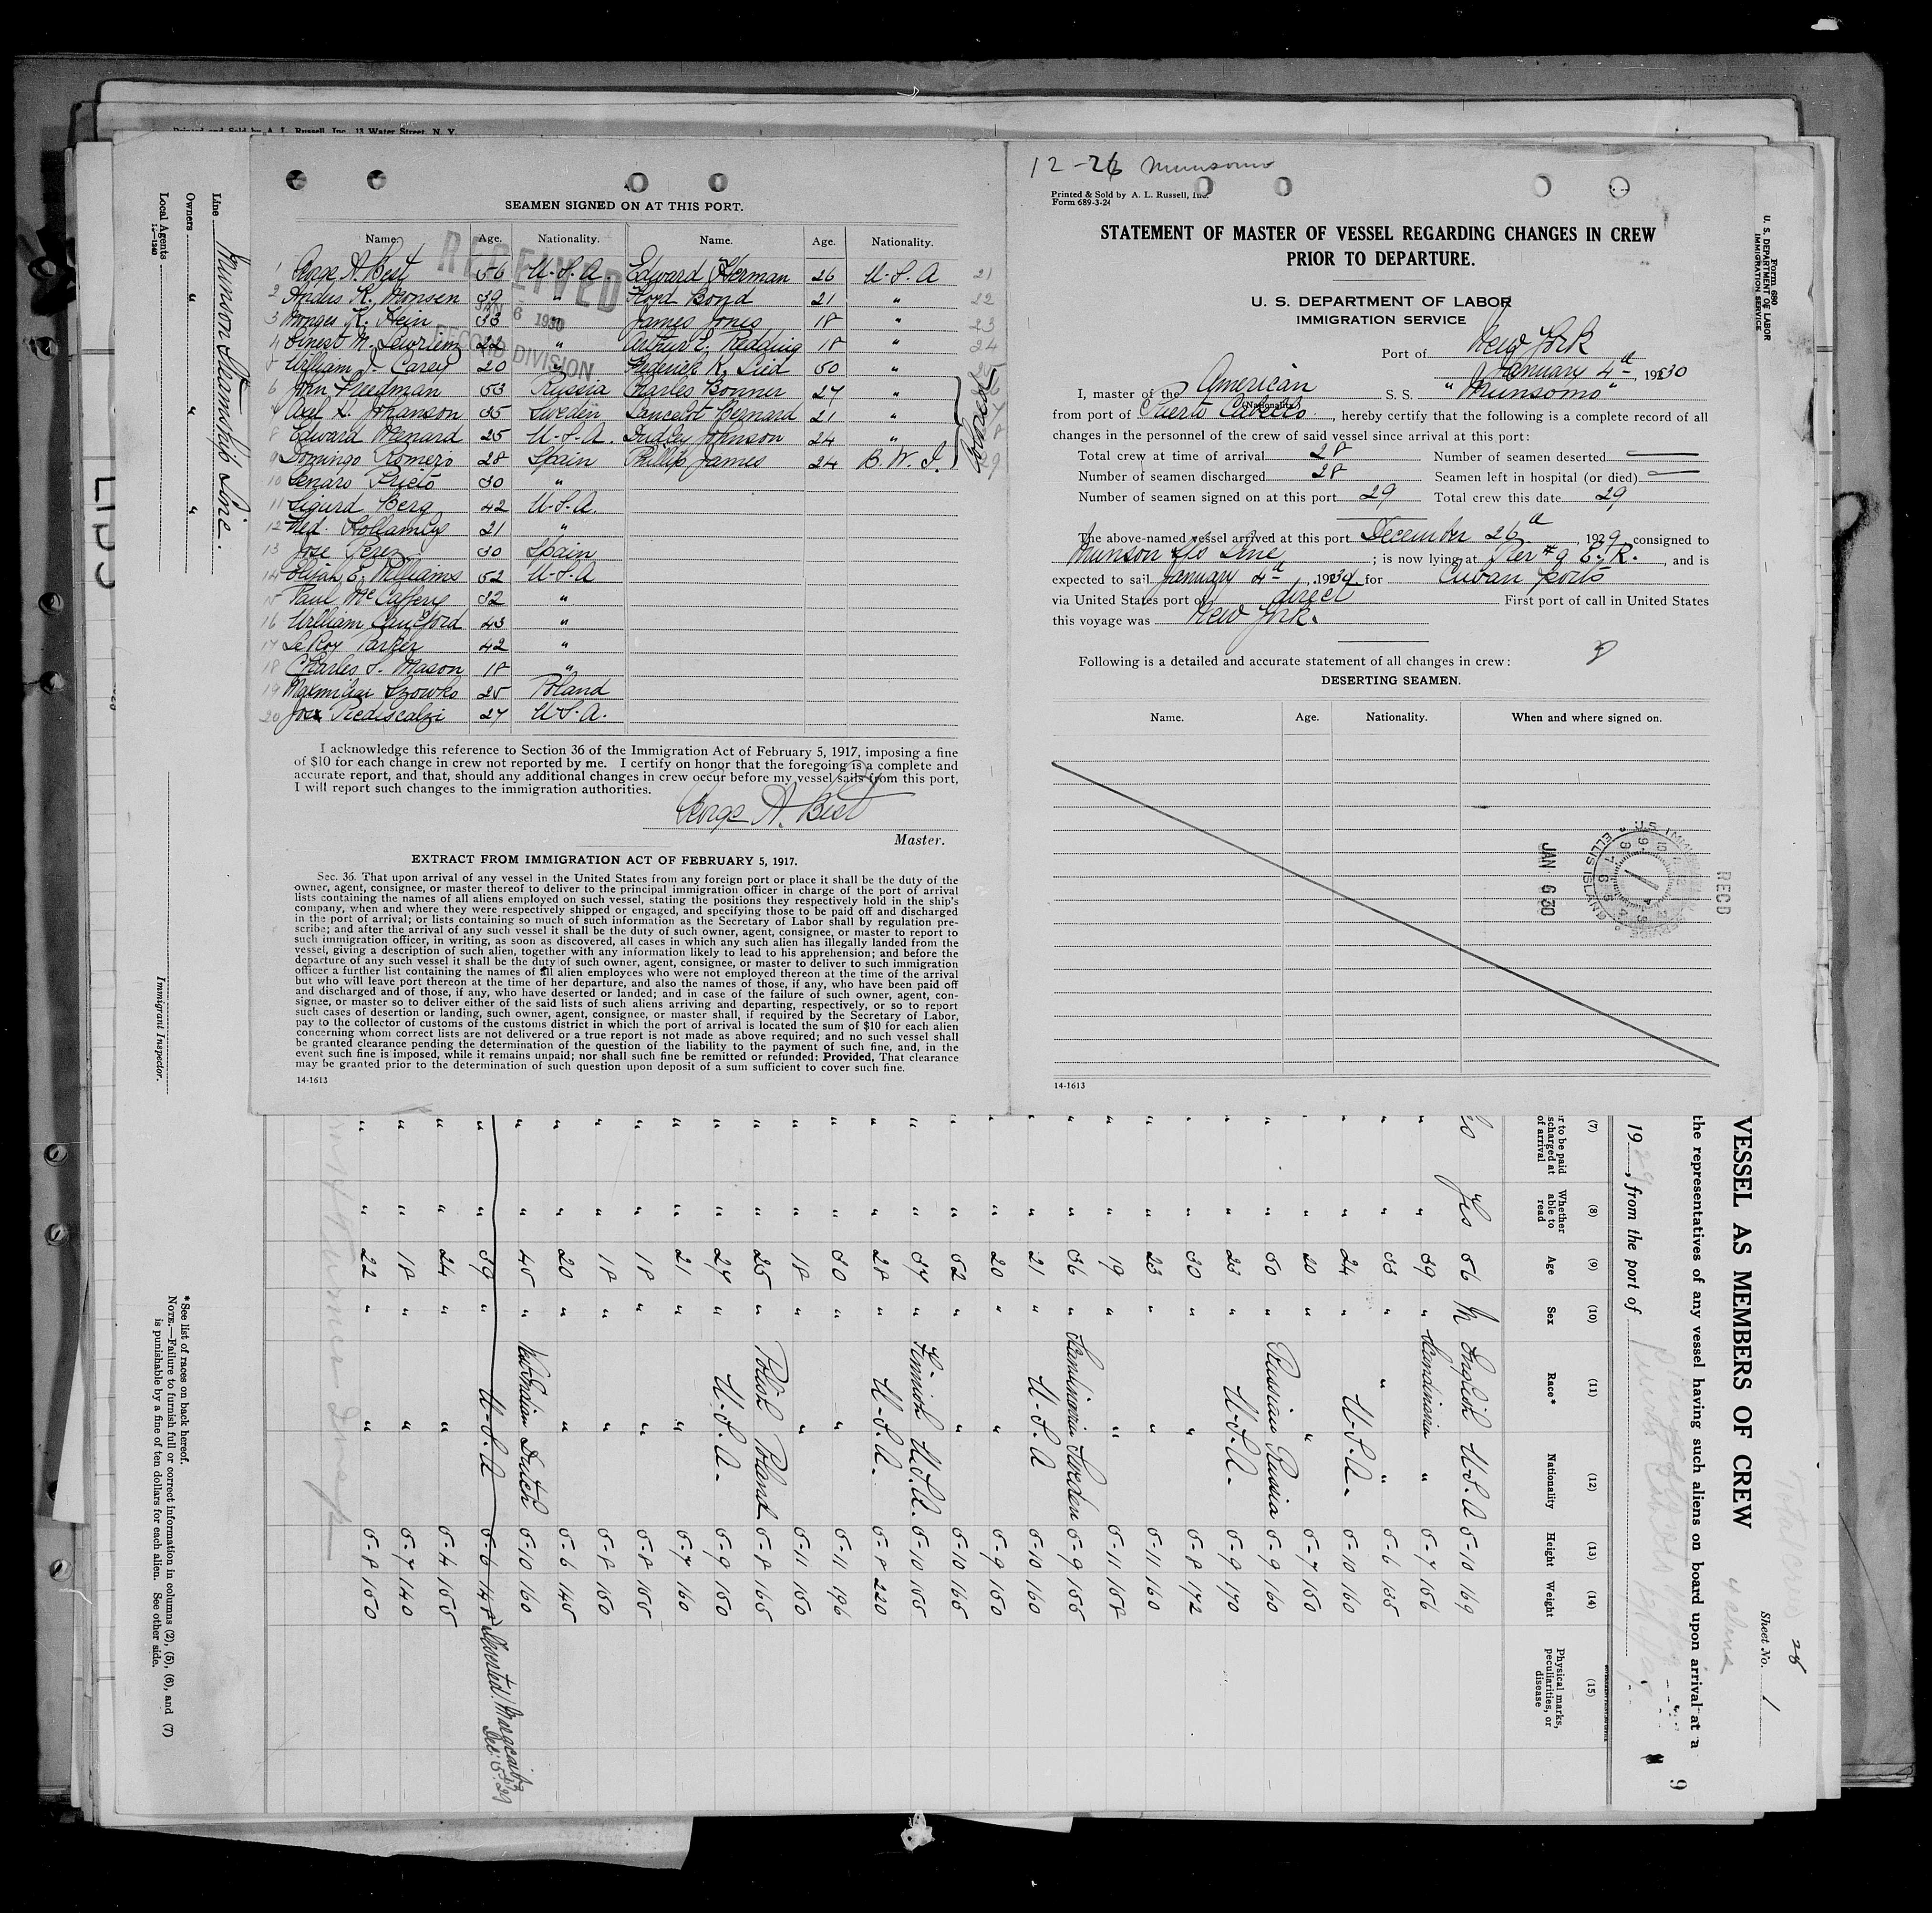 Printed and Sold by A. L. Russell, Inc., 13 Water Street, N. Y.
Line Munson Steamship Line.
Owners " " "
Local Agents
14-1240
Immigrant Inspector.
SEAMEN SIGNED ON AT THIS PORT.
Name. Age. Nationality. Name. Age. Nationality.
RECEIVED
JAN 6 1930
RECORD DIVISION
1 George A. Best 56 U-S-A. Edward Herman 26 U-S-A 21
2 Andus R. Monsen 39 " Floyd Bond 21 " 22
3 K. Hein 33 " James Jones 18 " 23
4 Ernest M. 22 " Arthur E. Redding 18 " 24
5 William J. Carey 20 " Frederick K. Lied 50 "
6 John Freedman 53 Russia Charles Bonner 27 "
7 Axel L. Johanson 35 Sweden Lancelot Bernard 21 "
8 Edward Menard 25 U-S-A. Dudley Johnson 24 " 8
9 Domingo Romero 28 Spain Phillip James 24 B. W. I. 29
10 Genaro Prieto 30 "
11 Sigurd Berg 42 U-S-A.
12 Med. 21 "
13 Jose Perez 30 Spain
14 Elijah E. Williams 52 U-S-A
15 Paul McCaffery 32 "
16 William Crawford 43 "
17 LeRoy Parker 42 "
18 Charles S. Mason 18 "
19 Maxmilian 25 Poland
20 Prediscalzi 27 U.S.A.
I acknowledge this reference to Section 36 of the Immigration Act of February 5, 1917, imposing a fine
of $10 for each change in crew not reported by me. I certify on honor that the foregoing is a complete and
accurate report, and that, should any additional changes in crew occur before my vessel sails from this port,
I will report such changes to the immigration authorities.
George A. Best
Master.
EXTRACT FROM IMMIGRATION ACT OF FEBRUARY 5, 1917.
Sec. 36. That upon arrival of any vessel in the United States from any foreign port or place it shall be the duty of the
owner, agent, consignee, or master thereof to deliver to the principal immigration officer in charge of the port of arrival
lists containing the names of all aliens employed on such vessel, stating the positions they respectively hold in the ship's
company, when and where they were respectively shipped or engaged, and specifying those to be paid off and discharged
in the port of arrival; or lists containing so much of such information as the Secretary of Labor shall by regulation pre-
scribe; and after the arrival of any such vessel it shall be the duty of such owner, agent, consignee, or master to report to
such immigration officer, in writing, as soon as discovered, all cases in which any such alien has illegally landed from the
vessel, giving a description of such alien, together with any information likely to lead to his apprehension; and before the
departure of any such vessel it shall be the duty of such owner, agent, consignee, or master to deliver to such immigration
officer a further list containing the names of all alien employees who were not employed thereon at the time of the arrival
but who will leave port thereon at the time of her departure, and also the names of those, if any, who have been paid off
and discharged and of those, if any, who have deserted or landed; and in case of the failure of such owner, agent, con-
signee, or master so to deliver either of the said lists of such aliens arriving and departing, respectively, or so to report
such cases of desertion or landing, such owner, agent, consignee, or master shall, if required by the Secretary of Labor,
pay to the collector of customs of the customs district in which the port of arrival is located the sum of $10 for each alien
concerning whom correct lists are not delivered or a true report is not made as above required; and no such vessel shall
be granted clearance pending the determination of the question of the liability to the payment of such fine, and, in the
event such fine is imposed, while it remains unpaid; nor shall such fine be remitted or refunded: Provided, That clearance
may be granted prior to the determination of such question upon deposit of a sum sufficient to cover such fine.
14-1613
12-26 Munsomo
Printed & Sold by A. L. Russell, Inc.
Form 689-3-24
STATEMENT OF MASTER OF VESSEL REGARDING CHANGES IN CREW
PRIOR TO DEPARTURE.
U. S. DEPARTMENT OF LABOR
IMMIGRATION SERVICE
Form 689
U. S. DEPARTMENT OF LABOR
IMMIGRATION SERVICE
Port of New York
January 4th, 1930
I, master of the American S. S. "Munsomo"
(Nationality)
from port of Puerto Cabello, hereby certify that the following is a complete record of all
changes in the personnel of the crew of said vessel since arrival at this port:
Total crew at time of arrival 28 Number of seamen deserted
Number of seamen discharged 28 Seamen left in hospital (or died)
Number of seamen signed on at this port 29 Total crew this date 29
The above-named vessel arrived at this port December 26th, 1929, consigned to
Munson S/S Line; is now lying at Pier #9 E. R., and is
expected to sail January 4th, 1930 for Cuban ports
via United States port of direct First port of call in United States
this voyage was New York.
Following is a detailed and accurate statement of all changes in crew:
DESERTING SEAMEN.
Name. Age. Nationality. When and where signed on.
U.S. IMM
ELLIS ISLAND
JAN 6 30
RECD
14-1613
Total crew 28
4 aliens
Sheet No. 1
9
VESSEL AS MEMBERS OF CREW
the representatives of any vessel having such aliens on board upon arrival at a
1929, from the port of
(7) (8) (9) (10) (11) (12) (13) (14) (15)
r to be paid
scharged at
of arrival
Whether
able to
read
Age
Sex
Race*
Nationality
Height
Weight
Physical marks,
peculiarities, or
disease
Yes 56 M English U-S-A 5-10 169
" " 39 " Scandinavia " 5-7 156
" " 33 " " " 5-6 135
" " 24 " U-S-A- 5-10 160
" " 20 " " 5-7 150
" " 50 " Russian Russia 5-9 160
" " 23 " U-S-A- 5-9 170
" " 30 " " 5-8 172
" " 23 " " 5-11 160
" " 19 " " 5-11 158
" " 36 " Scandinavia Sweden 5-9 155
" " 21 " U-S-A 5-10 160
" " 20 " " 5-9 150
" " 52 " " 5-10 165
" " 37 " Finnish U.S.A. 5-10 155
" " 28 " U-S-A. 5-8 220
" " 30 " " 5-11 196
" " 18 " " 5-11 150
" " 25 " Polish Poland 5-8 165
" " 27 " U-S-A- 5-9 150
" " 21 " " 5-7 160
" " 18 " " 5-8 155
" " 18 " " 5-8 150
" " 20 " " 5-6 145
" " 45 " West Indian Dutch 5-10 160
" " 39 " U-S-A 5-6 148 Deserted. Maracaibo Dec. 5th 29
" " 24 " " 5-4 155
" " 18 " " 5-7 140
" " 22 " " 5-8 150
* See list of races on back hereof.
NOTE.—Failure to furnish full or correct information in columns (2), (5), (6), and (7)
is punishable by a fine of ten dollars for each alien. See other side.